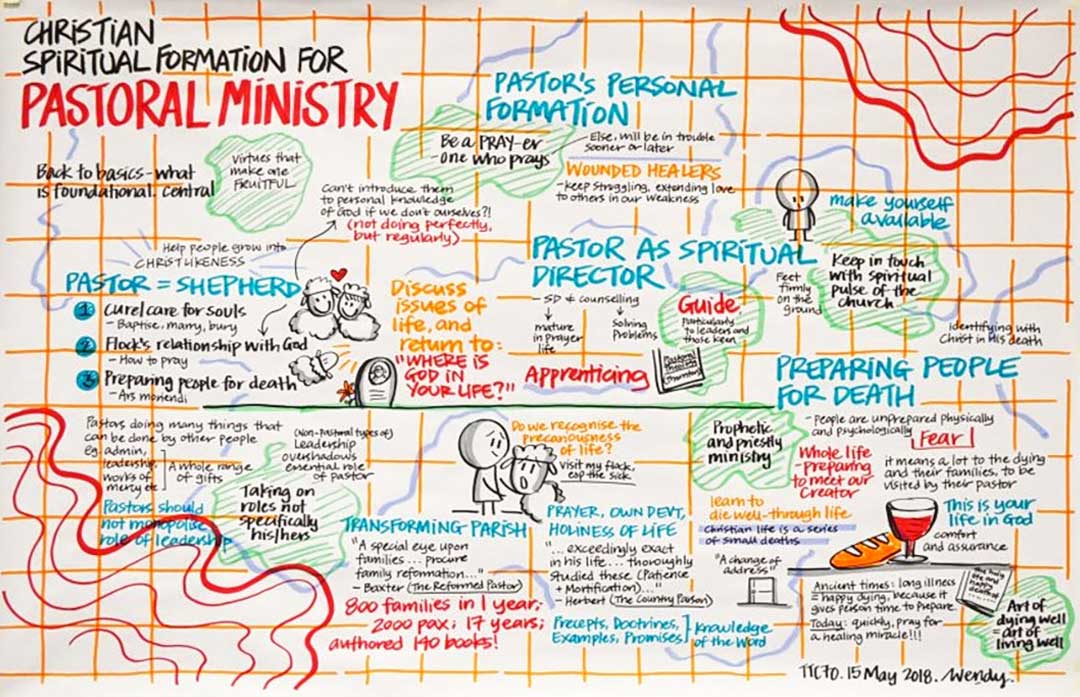 CHRISTIAN
SPIRITUAL FORMATION FOR
PASTORAL MINISTRY
Back to basics - what
is foundational. central
Virtues that
make one
FRUITFUL
Can't introduce them
to personal knowledge
of God if we don't ourselves?!
(not doing perfectly,
but regularly)
Help people grow into
CHRISTLIKENESS
PASTOR = SHEPHERD
1 Cure/care for souls
- Baptise, marry, bury
2 Flock's relationship with God
- How to pray
3 Preparing people for death
- Ars moriendi
Discuss
issues of
life, and
return to:
"WHERE IS
GOD IN
YOUR LIFE?"
PASTOR'S PERSONAL
FORMATION
Be a PRAY-er
- one who prays
Else, will be in trouble
sooner or later
WOUNDED HEALERS
- keep struggling, extending love
to others in our weakness
PASTOR AS SPIRITUAL
DIRECTOR
- SD & counselling
mature
in prayer
life
Solving
Problems
Guide
Particularly
to leaders and
those keen
Apprenticing
Pastoral
Theology
(Thornton)
make yourself
available
Keep in touch
with spiritual
pulse of the
church
Feet
firmly
on the
ground
identifying with
Christ in His death
PREPARING PEOPLE
FOR DEATH
- People are unprepared physically
and psychologically
Fear!
Prophetic
and priestly
ministry
Whole life
- preparing
to meet our
Creator
it means a lot to the dying
and their families, to be
visited by their pastor
learn to
die well - through life
Christian life is a series
of small deaths
This is your
life in God
comfort
and assurance
"A change of
address"
Ancient times: long illness
= happy dying, because it
gives person time to prepare.
Today: quickly, pray for
a healing miracle!!!
life and
happy
death of...
Art of
dying well
= art of
living well
Pastors doing many things that
can be done by other people
eg. admin,
leadership,
works of
mercy etc
A whole range
of gifts
Pastors should
not monopolise
role of leadership
(Non-pastoral types of)
Leadership
overshadows
essential role
of pastor
Taking on
roles not
specifically
his/hers
Do we recognise the
precariousness
of life?
Visit my flock,
esp the sick.
TRANSFORMING PARISH
"A special eye upon
families ... procure
family reformation..."
- Baxter (The Reformed Pastor)
800 families in 1 year;
2000 pax; 17 years;
authored 140 books!
PRAYER, OWN DEVT,
HOLINESS OF LIFE
"... exceedingly exact
in his life.... thoroughly
studied these (Patience
+ Mortification)..."
- Herbert (The Country Parson)
Precepts, Doctrines,
Examples, Promises
Knowledge
of the Word
TTC70. 15 May 2018. Wendy.